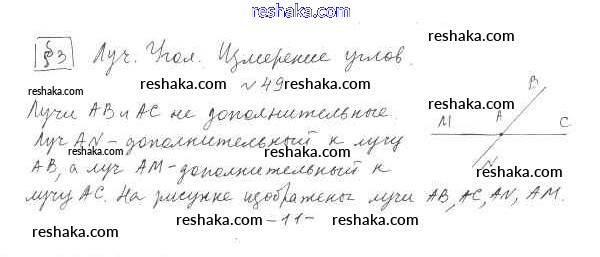 reshaka.com
§3 Луч. Угол. Измерение углов. reshaka.com
reshaka.com reshaka.com
№ 49
Лучи AB и AC не дополнительные.
reshaka.com reshaka.com
Луч AN - дополнительный к лучу
reshaka.com reshaka.com
AB, а луч AM - дополнительный к
лучу AC. На рисунке изображены лучи AB, AC, AN, AM.
reshaka.com reshaka.com reshaka.com
-11-
B
M A C
N